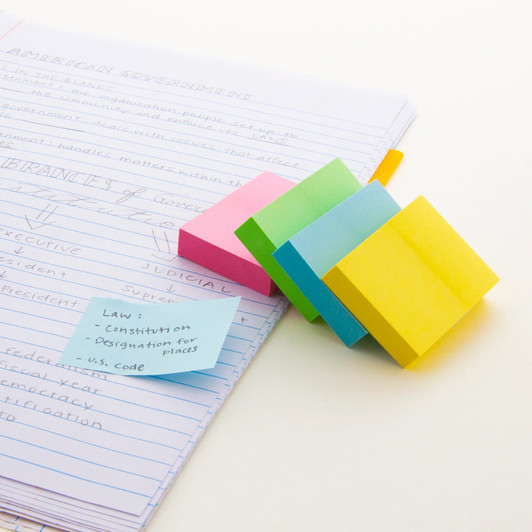 AMERICAN GOVERNMENT
IN THE BLANK:
ernment: the organization people set up to
the community and enforce its LAWS
government deals with issues that affect
ernment: handles matters within th
BRANCHES of Gover
EXECUTIVE
JUDICIAL
resident
Supre
President
Law:
- Constitution
- Designation for
places
- U.S. code
federalism
fiscal year
emocracy
tification